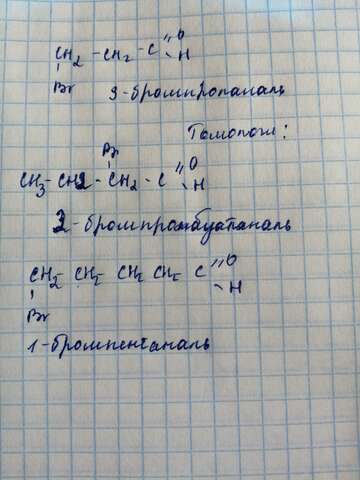 CH₂ - CH₂ - C
O
H
Br
3-бромпропаналь
Гомологи:
Br
CH₃ - CH2 - CH₂ - C
O
H
2-бром
CH₂- CH₂- CH₂ CH₂- C
O
H
Br
1-бромпентаналь